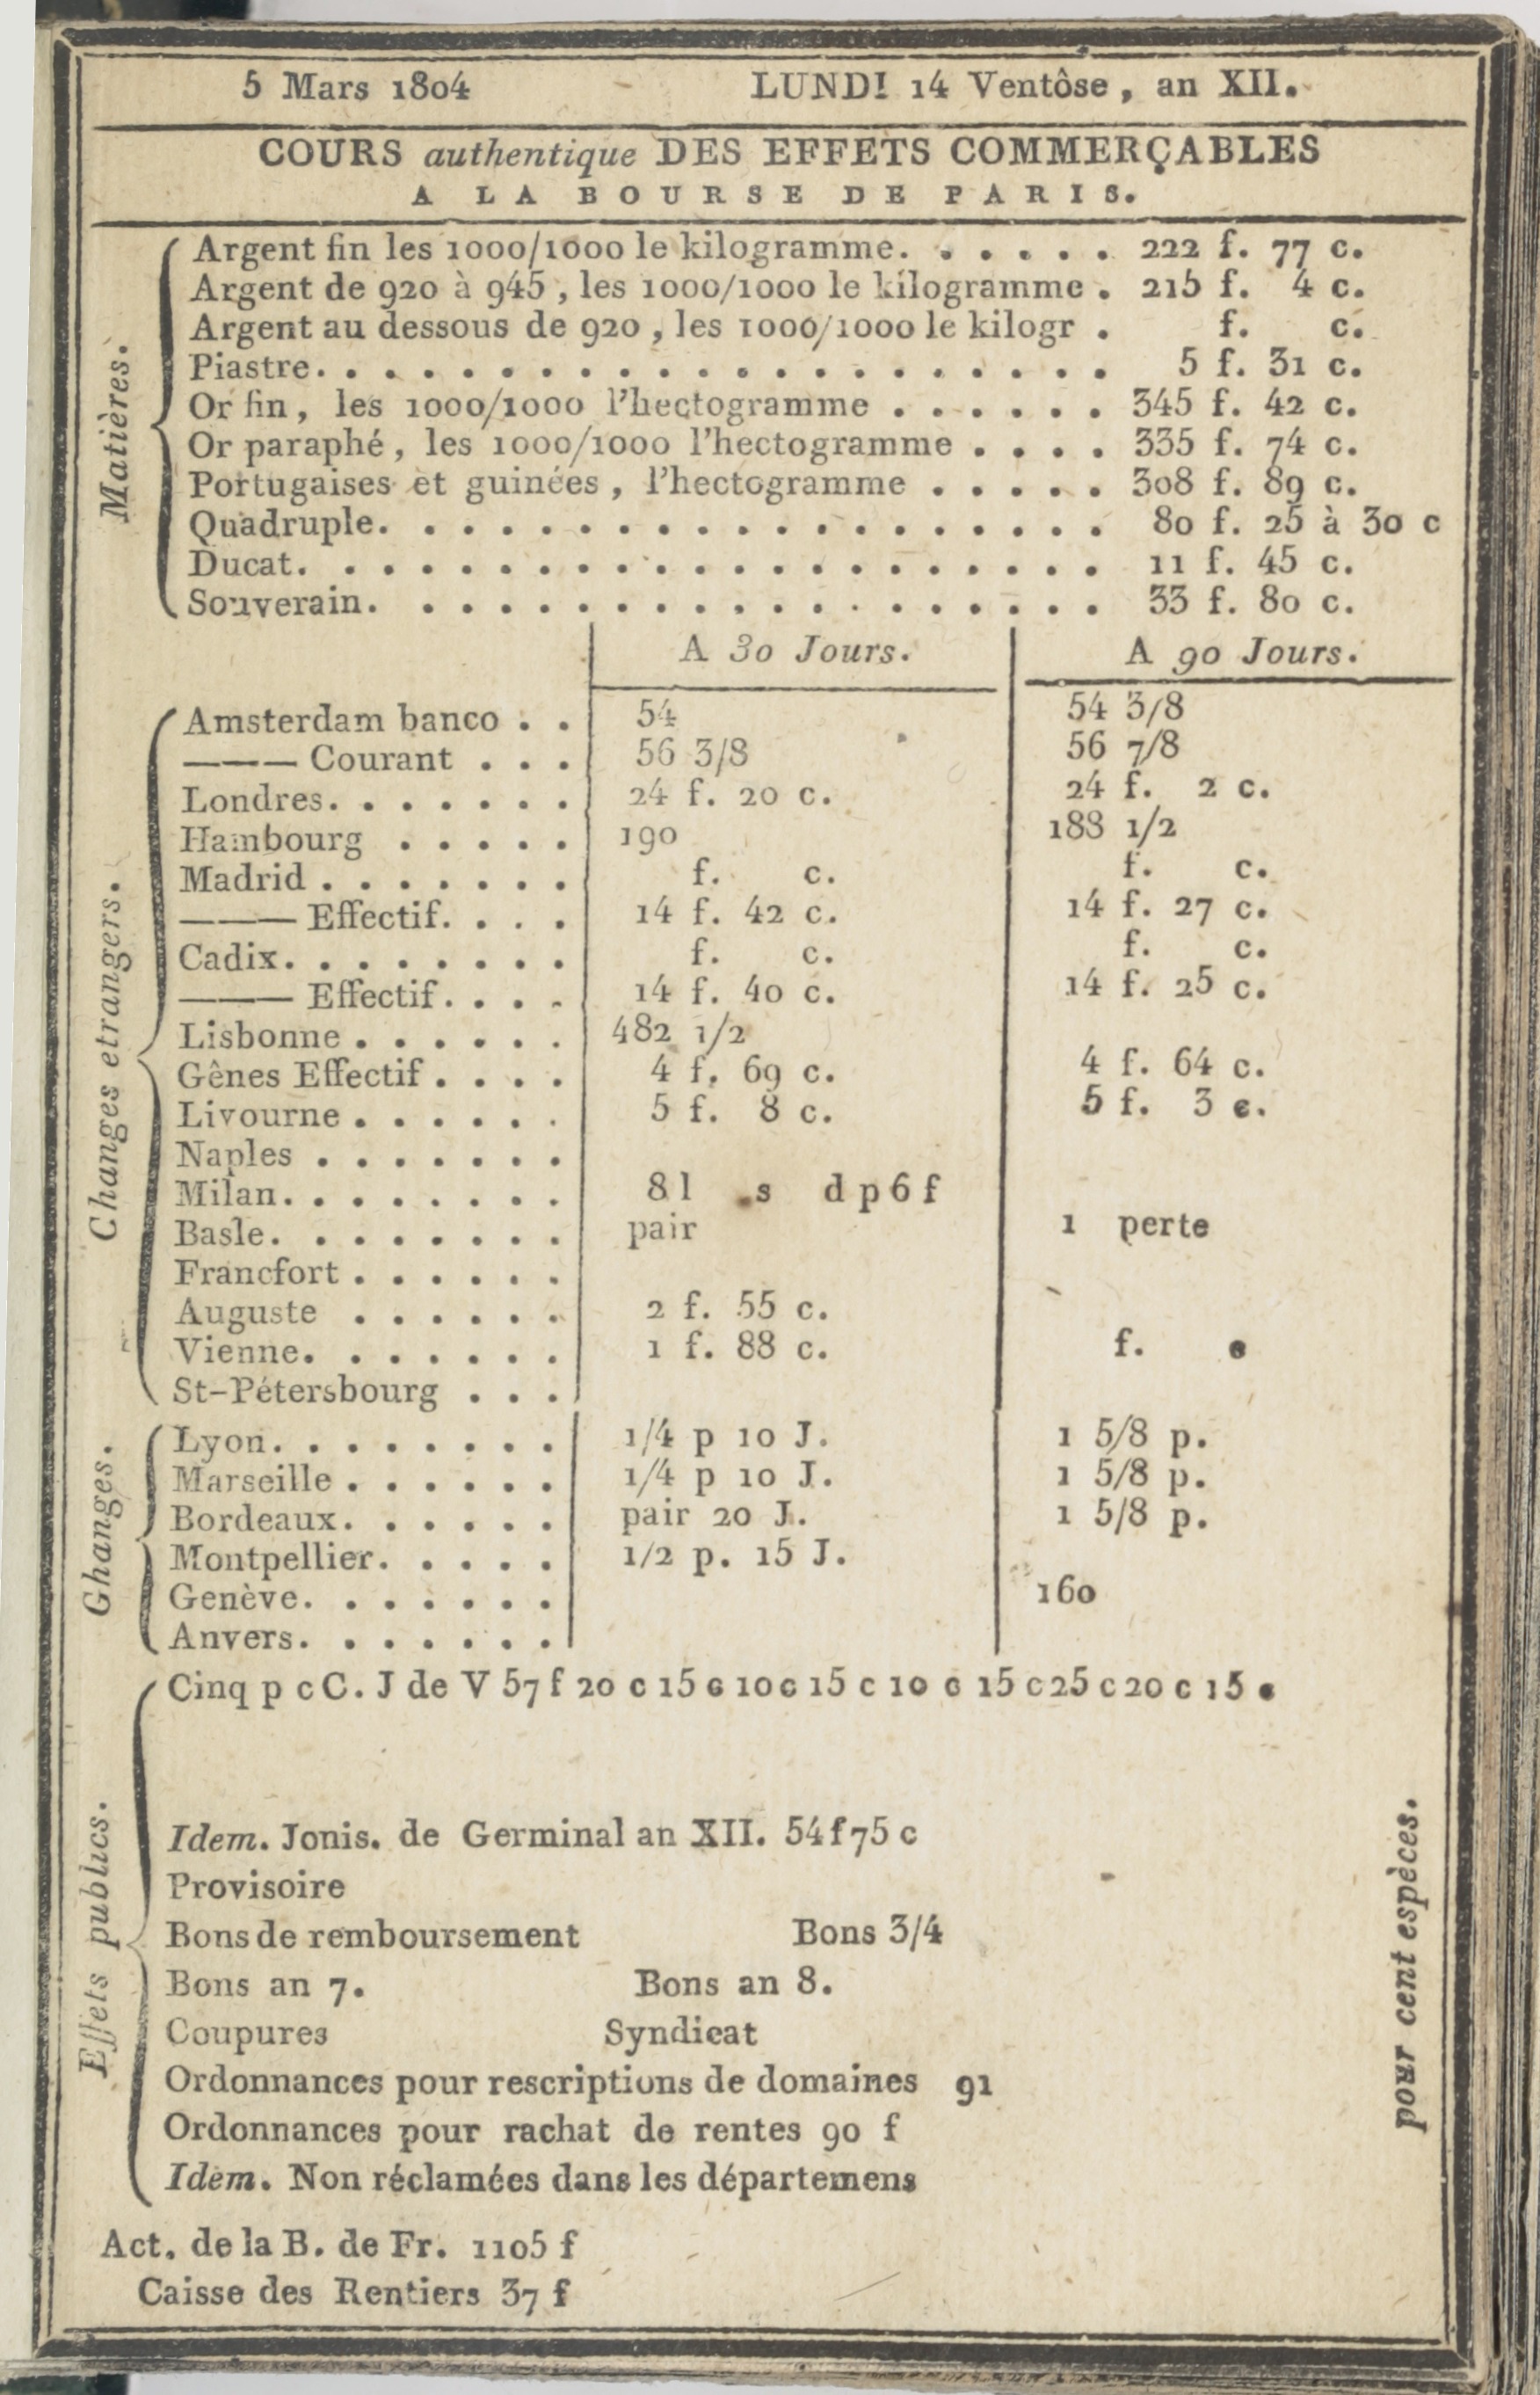 5 Mars 1804 LUNDI 14 Ventôse, an XII.
COURS authentique DES EFFETS COMMERÇABLES
A LA BOURSE DE PARIS.
Matières.
Argent fin les 1000/1000 le kilogramme. . . . . . 222 f. 77 c.
Argent de 920 à 945, les 1000/1000 le kilogramme . 215 f. 4 c.
Argent au dessous de 920, les 1000/1000 le kilogr . f. c.
Piastre. . . . . . . . . . . . . . . . . . . . . 5 f. 31 c.
Or fin, les 1000/1000 l'hectogramme . . . . . . 345 f. 42 c.
Or paraphé, les 1000/1000 l'hectogramme . . . . 335 f. 74 c.
Portugaises et guinées, l'hectogramme . . . . . 308 f. 89 c.
Quadruple. . . . . . . . . . . . . . . . . . . . 80 f. 25 à 30 c
Ducat. . . . . . . . . . . . . . . . . . . . . . 11 f. 45 c.
Souverain. . . . . . . . . . . . . . . . . . . 33 f. 80 c.
A 30 Jours. A 90 Jours.
Changes etrangers.
Amsterdam banco . . 54 54 3/8
——— Courant . . . 56 3/8 56 7/8
Londres. . . . . . . 24 f. 20 c. 24 f. 2 c.
Hambourg . . . . . 190 188 1/2
Madrid . . . . . . . f. c. f. c.
——— Effectif. . . . 14 f. 42 c. 14 f. 27 c.
Cadix. . . . . . . . f. c. f. c.
——— Effectif. . . . 14 f. 40 c. 14 f. 25 c.
Lisbonne . . . . . . 482 1/2
Gênes Effectif . . . . 4 f. 69 c. 4 f. 64 c.
Livourne . . . . . . 5 f. 8 c. 5 f. 3 c.
Naples . . . . . . .
Milan. . . . . . . . 8 l s d p 6 f
Basle. . . . . . . . pair 1 perte
Francfort . . . . . .
Auguste . . . . . . 2 f. 55 c.
Vienne. . . . . . . 1 f. 88 c. f. c
St-Pétersbourg . . .
Ghanges.
Lyon. . . . . . . . 1/4 p 10 J. 1 5/8 p.
Marseille . . . . . . 1/4 p 10 J. 1 5/8 p.
Bordeaux. . . . . . pair 20 J. 1 5/8 p.
Montpellier. . . . . 1/2 p. 15 J.
Genève. . . . . . . 160
Anvers. . . . . . .
Effets publics.
Cinq p c C. J de V 57 f 20 c 15 c 10 c 15 c 10 c 15 c 25 c 20 c 15 c
Idem. Jonis. de Germinal an XII. 54 f 75 c
Provisoire
Bons de remboursement Bons 3/4
Bons an 7. Bons an 8.
Coupures Syndicat
Ordonnances pour rescriptions de domaines 91
Ordonnances pour rachat de rentes 90 f
Idem. Non réclamées dans les départemens
pour cent espèces.
Act. de la B. de Fr. 1105 f
Caisse des Rentiers 37 f